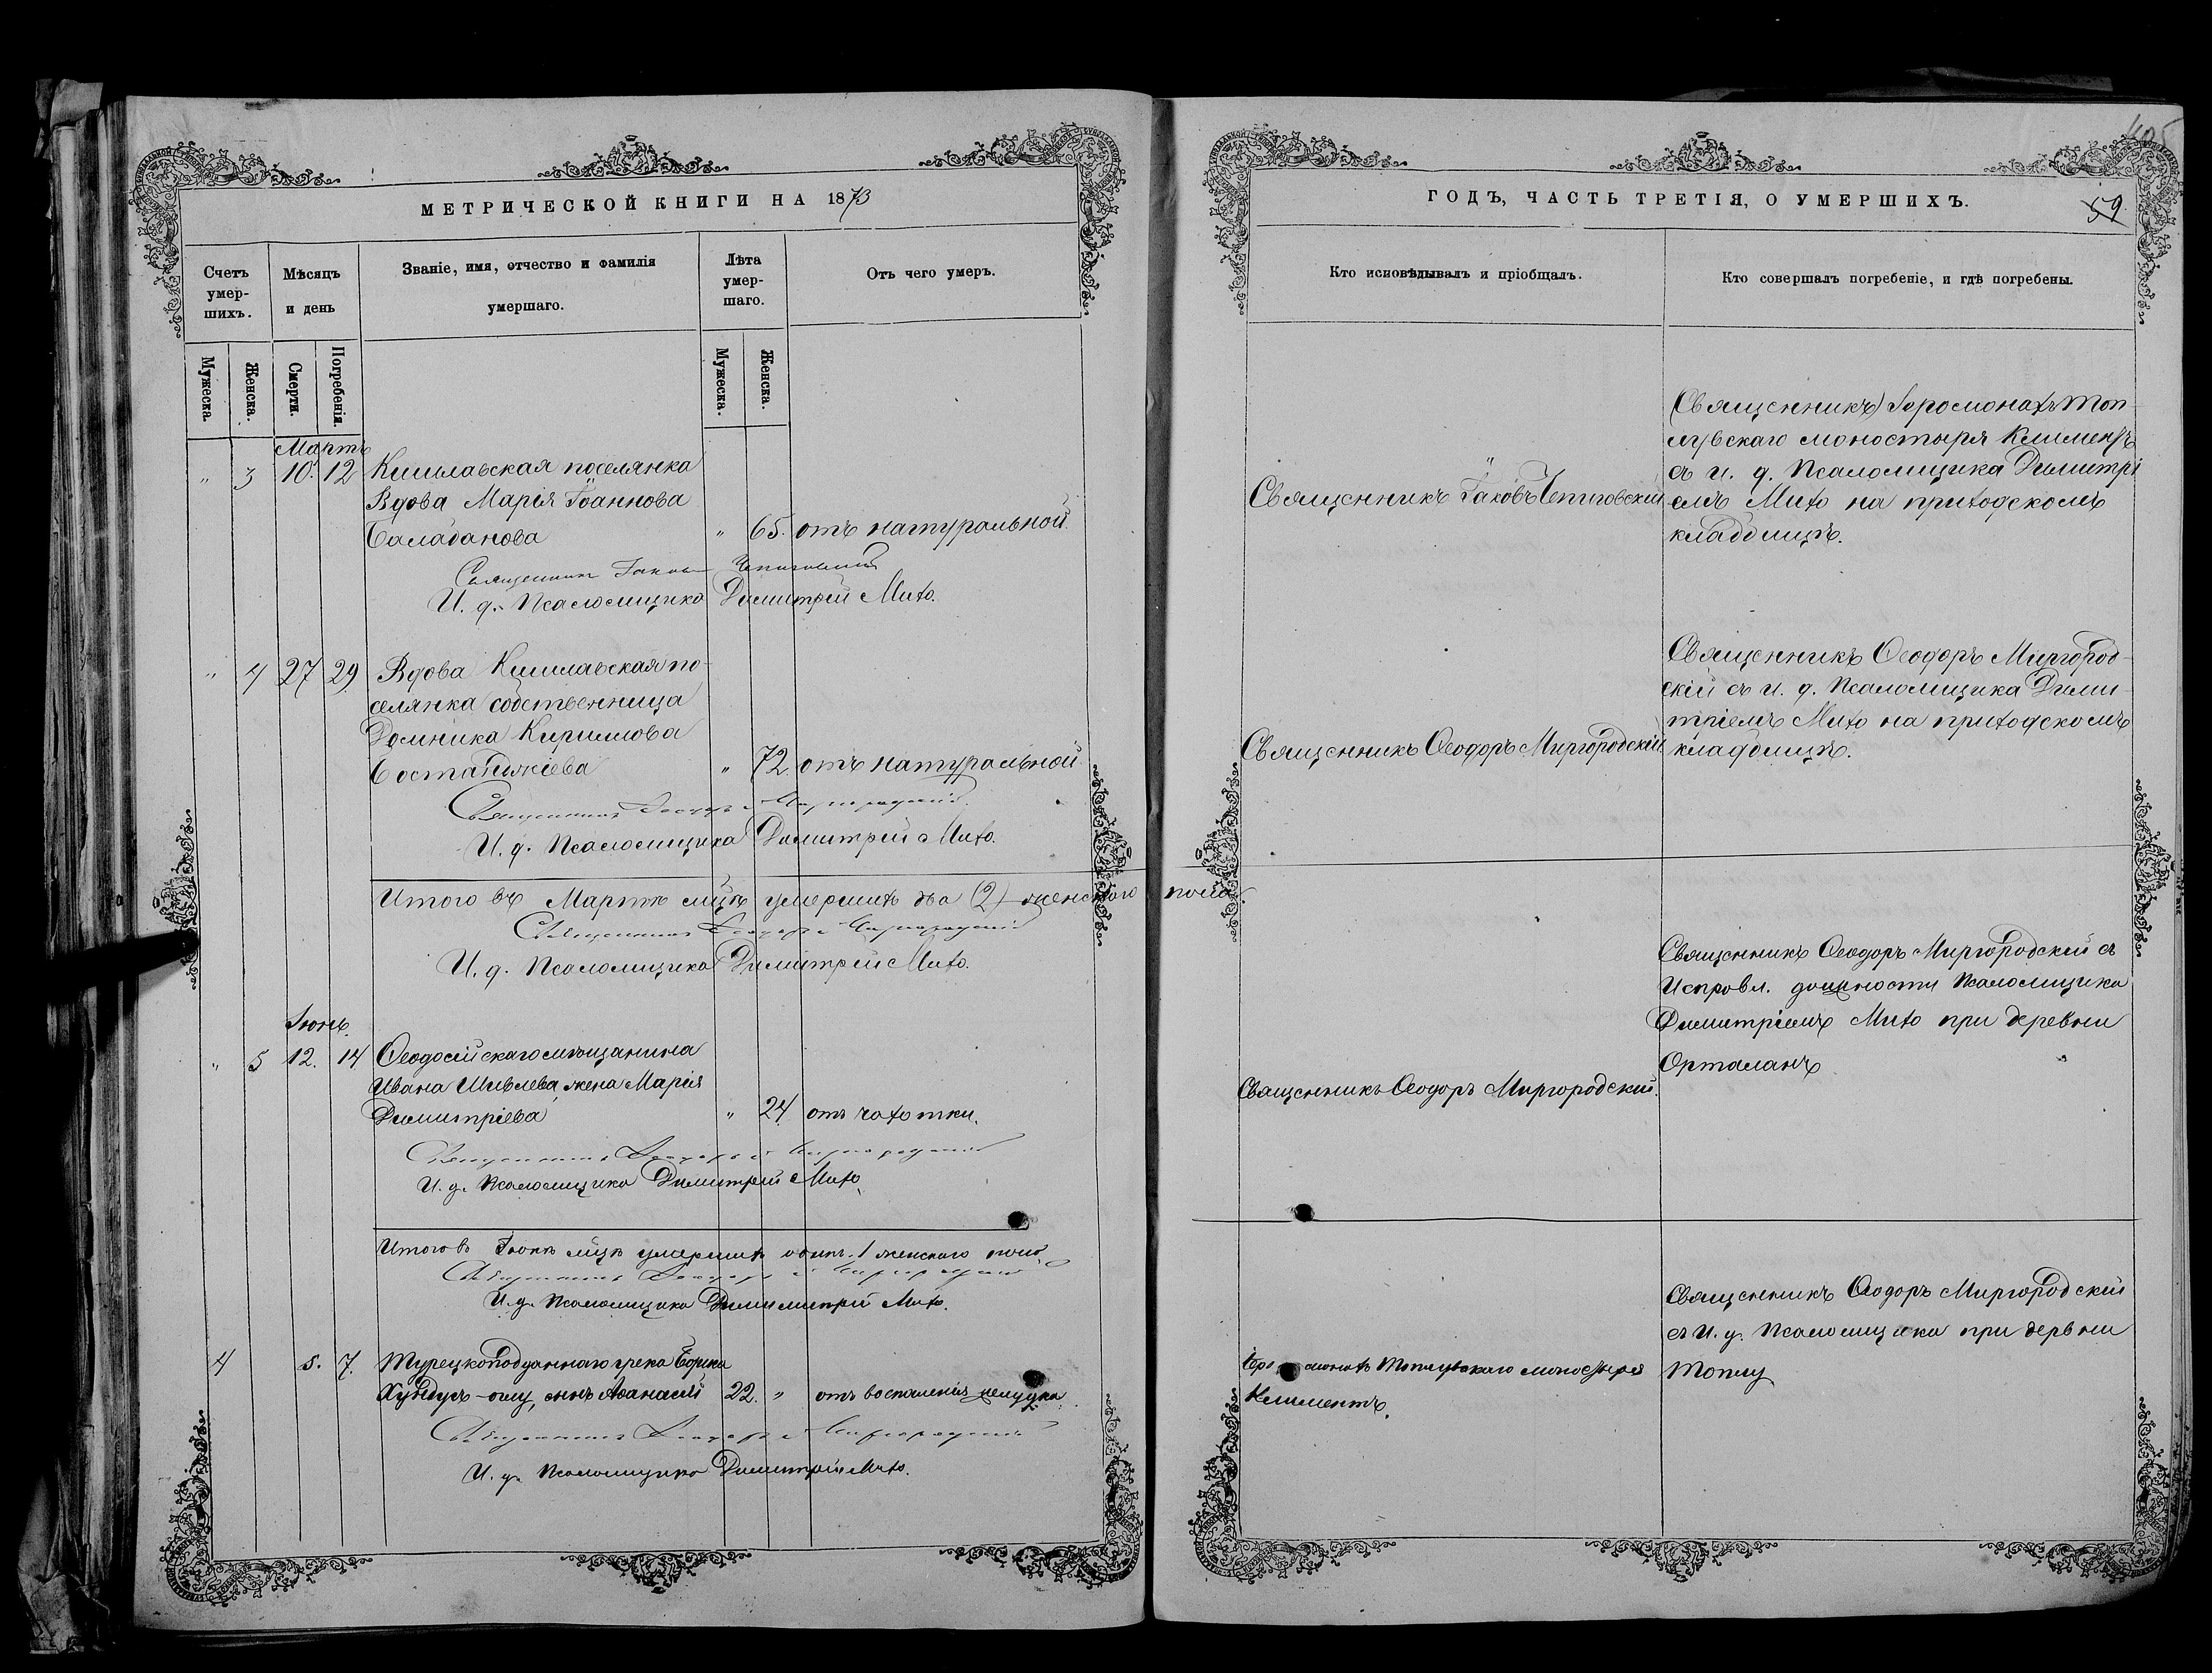 МЕТРИЧЕСКОЙ КНИГИ НА 1873
Счетъ умер-шихъ.
Мѣсяцъ и день
Званіе, имя, отчество и фамилія умершаго.
Лѣта умер-шаго.
Отъ чего умеръ.
Мужеска.
Женска.
Смерти.
Погребенія.
Мужеска.
Женска.
Мартъ
" 3 10. 12 Кишлавская поселянка
Вдова Марія Іоаннова
Балабанова " 65. отъ натуральной.
Священникъ Іаковъ Чепиговскій
И. д. Псаломщика Димитрій Михо.
" 4 27 29 Вдова Кишлавская по-
селянка собственница
Домника Кириллова
Бостанджіева " 72. отъ натуральной
Священникъ Ѳеодоръ Миргородскій.
И. д. Псаломщика Димитрій Михо.
Итого въ Мартѣ мцѣ умершихъ два (2) женского пола.
Священникъ Ѳеодоръ Миргородскій
И. д. Псаломщика Димитрій Михо.
Іюнь.
" 5 12. 14 Ѳеодосійскаго мѣщанина
Ивана Шивлева, жена Марія
Димитріева " 24 отъ чахотки.
Священникъ Ѳеодоръ Миргородскій
И. д. Псаломщика Димитрій Михо
Итого в Іюнѣ мцѣ умершихъ одинъ. 1 женского пола
Священникъ Ѳеодоръ Миргородскій
И. д. Псаломщика Димимитрій Михо.
4 5. 7. Турецкоподданнаго грека
оглу, сынъ Аѳанасій 22. " отъ воспаленія желудка.
Священникъ Ѳеодоръ Миргородскій
И. д. Псаломщика Димитрій Михо.
405
ГОДЪ, ЧАСТЬ ТРЕТІЯ, О УМЕРШИХЪ.
59
Кто исповѣдывалъ и пріобщалъ.
Кто совершалъ погребеніе, и гдѣ погребены.
Священникъ Іаковъ Чепиговскій
(Священникъ) Іеромонахъ Топ-
лувскаго монастыря Климентъ
съ и. д. Псаломщика Димитрі
емъ Михо на приходскомъ
кладбищѣ.
Священникъ Ѳеодоръ Миргородскій
Священникъ Ѳеодоръ Миргород-
скій съ и. д. Псаломщика Дими-
тріемъ Михо на приходскомъ
кладбищѣ.
Священникъ Ѳеодоръ Миргородскій.
Священникъ Ѳеодоръ Миргородскій съ
Исправл. должности Псаломщика
Димитріемъ Михо при деревни
Орталанъ
монахъ Топлувскаго монастыря
Климентъ.
Священникъ Ѳеодоръ Миргородскій
съ И. д. Псаломщика при дервни
Топлу